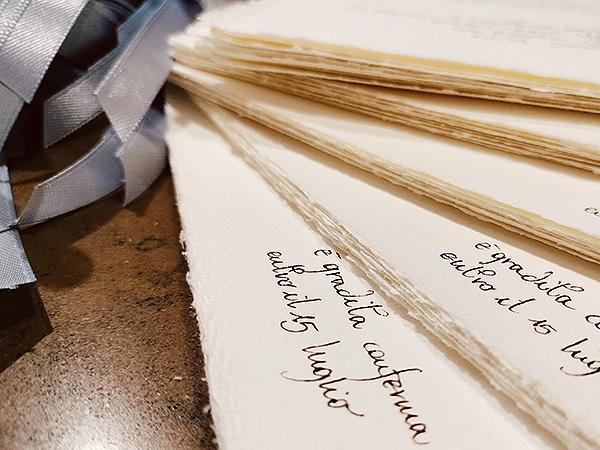 è gradita conferma
entro il 15 luglio
è gradita co
entro il 15 lug